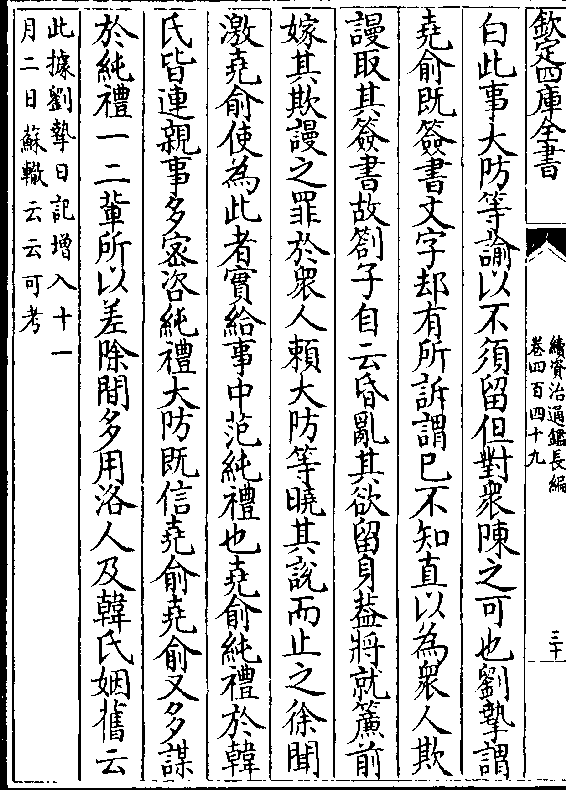 欽定四庫全書
續資治通鑑長編
卷四百四十九
三十
白此事大防等諭以不須留但對衆陳之可也劉摯謂
堯俞既簽書文字却有所訴謂已不知直以為衆人欺
謾取其簽書故劄子自云昏亂其欲留身葢將就簾前
嫁其欺謾之罪於衆人賴大防等曉其說而止之徐聞
激堯俞使為此者實給事中范純禮也堯俞純禮於韓
氏皆連親事多密咨純禮大防既信堯俞堯俞又多謀
於純禮一二輩所以差除間多用洛人及韓氏姻舊云
此據劉摯日記增入十一
月二日蘇轍云云可考